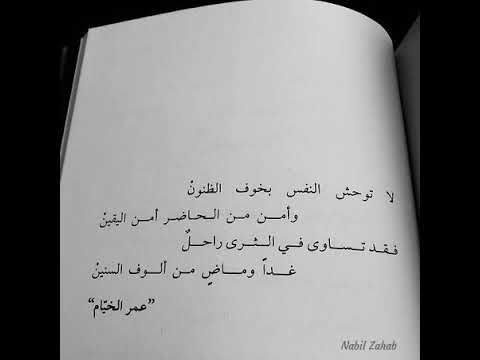 لا توحش النفس بخوف الظنونْ
وأمـن من الحاضر أمن اليقينْ
فقد تساوى في الثرى راحلٌ
غداً وماضٍ من ألوف السنينْ
”عمر الخيّام“
Nabil Zahab